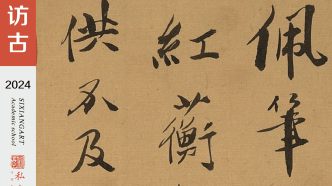 访古
2024
SIXIANGART
Academic school
私
佩筆
紅蘅
供不及